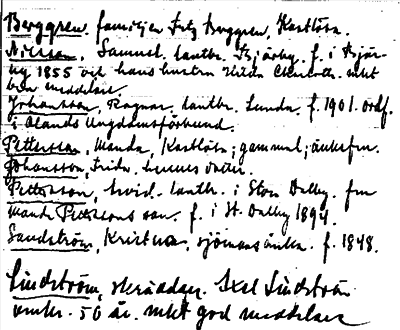 Berggren, familjen Fritz Berggren, Kastlösa.
Nilsson, Samuel. lantbr. Bjärby. f. i Bjär-
by 1855 och hans hustru Hilda Charlotta. mkt
bra meddelare.
Johansson, Ragnar, lantbr. Lunda. f. 1901. ordf.
i Ölands Ungdomsförbund.
Pettersson, Manda, Kastlösa; gammal; änkefru.
Johansson, Frida, hennes dotter.
Pettersson, Arvid. lantbr. i Stora Dalby. fru
Manda Petterssons son. f. i St. Dalby 1894.
Sandström, Kristina, sjömansänka. f. 1848.
Lindström, skräddar. Axel Lindström
omkr. 50 år. mkt god meddelare